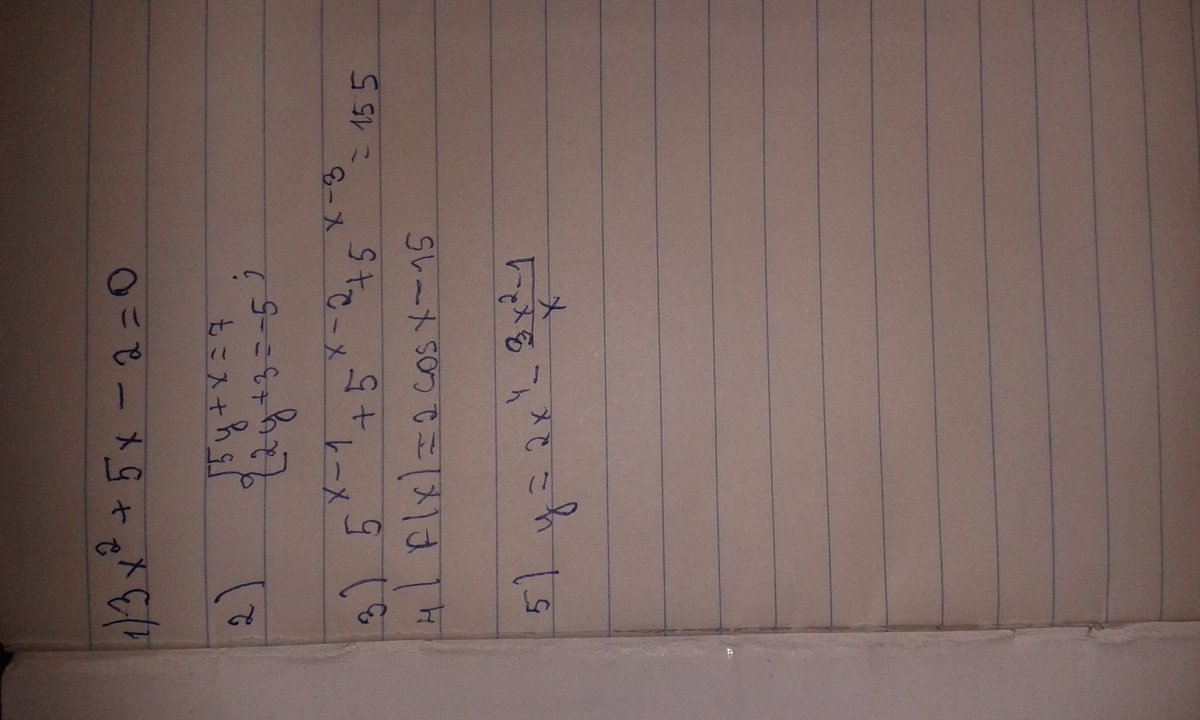 1) 3x² + 5x - 2 = 0
2) { 5y + x = 7
{ 2y + 3 = -5 ;
3) 5^(x-1) + 5^(x-2) + 5^(x-3) = 155
4) F(x) = 2 cos x - 15
5) y = 2x⁴ - (3x² - 1)/x